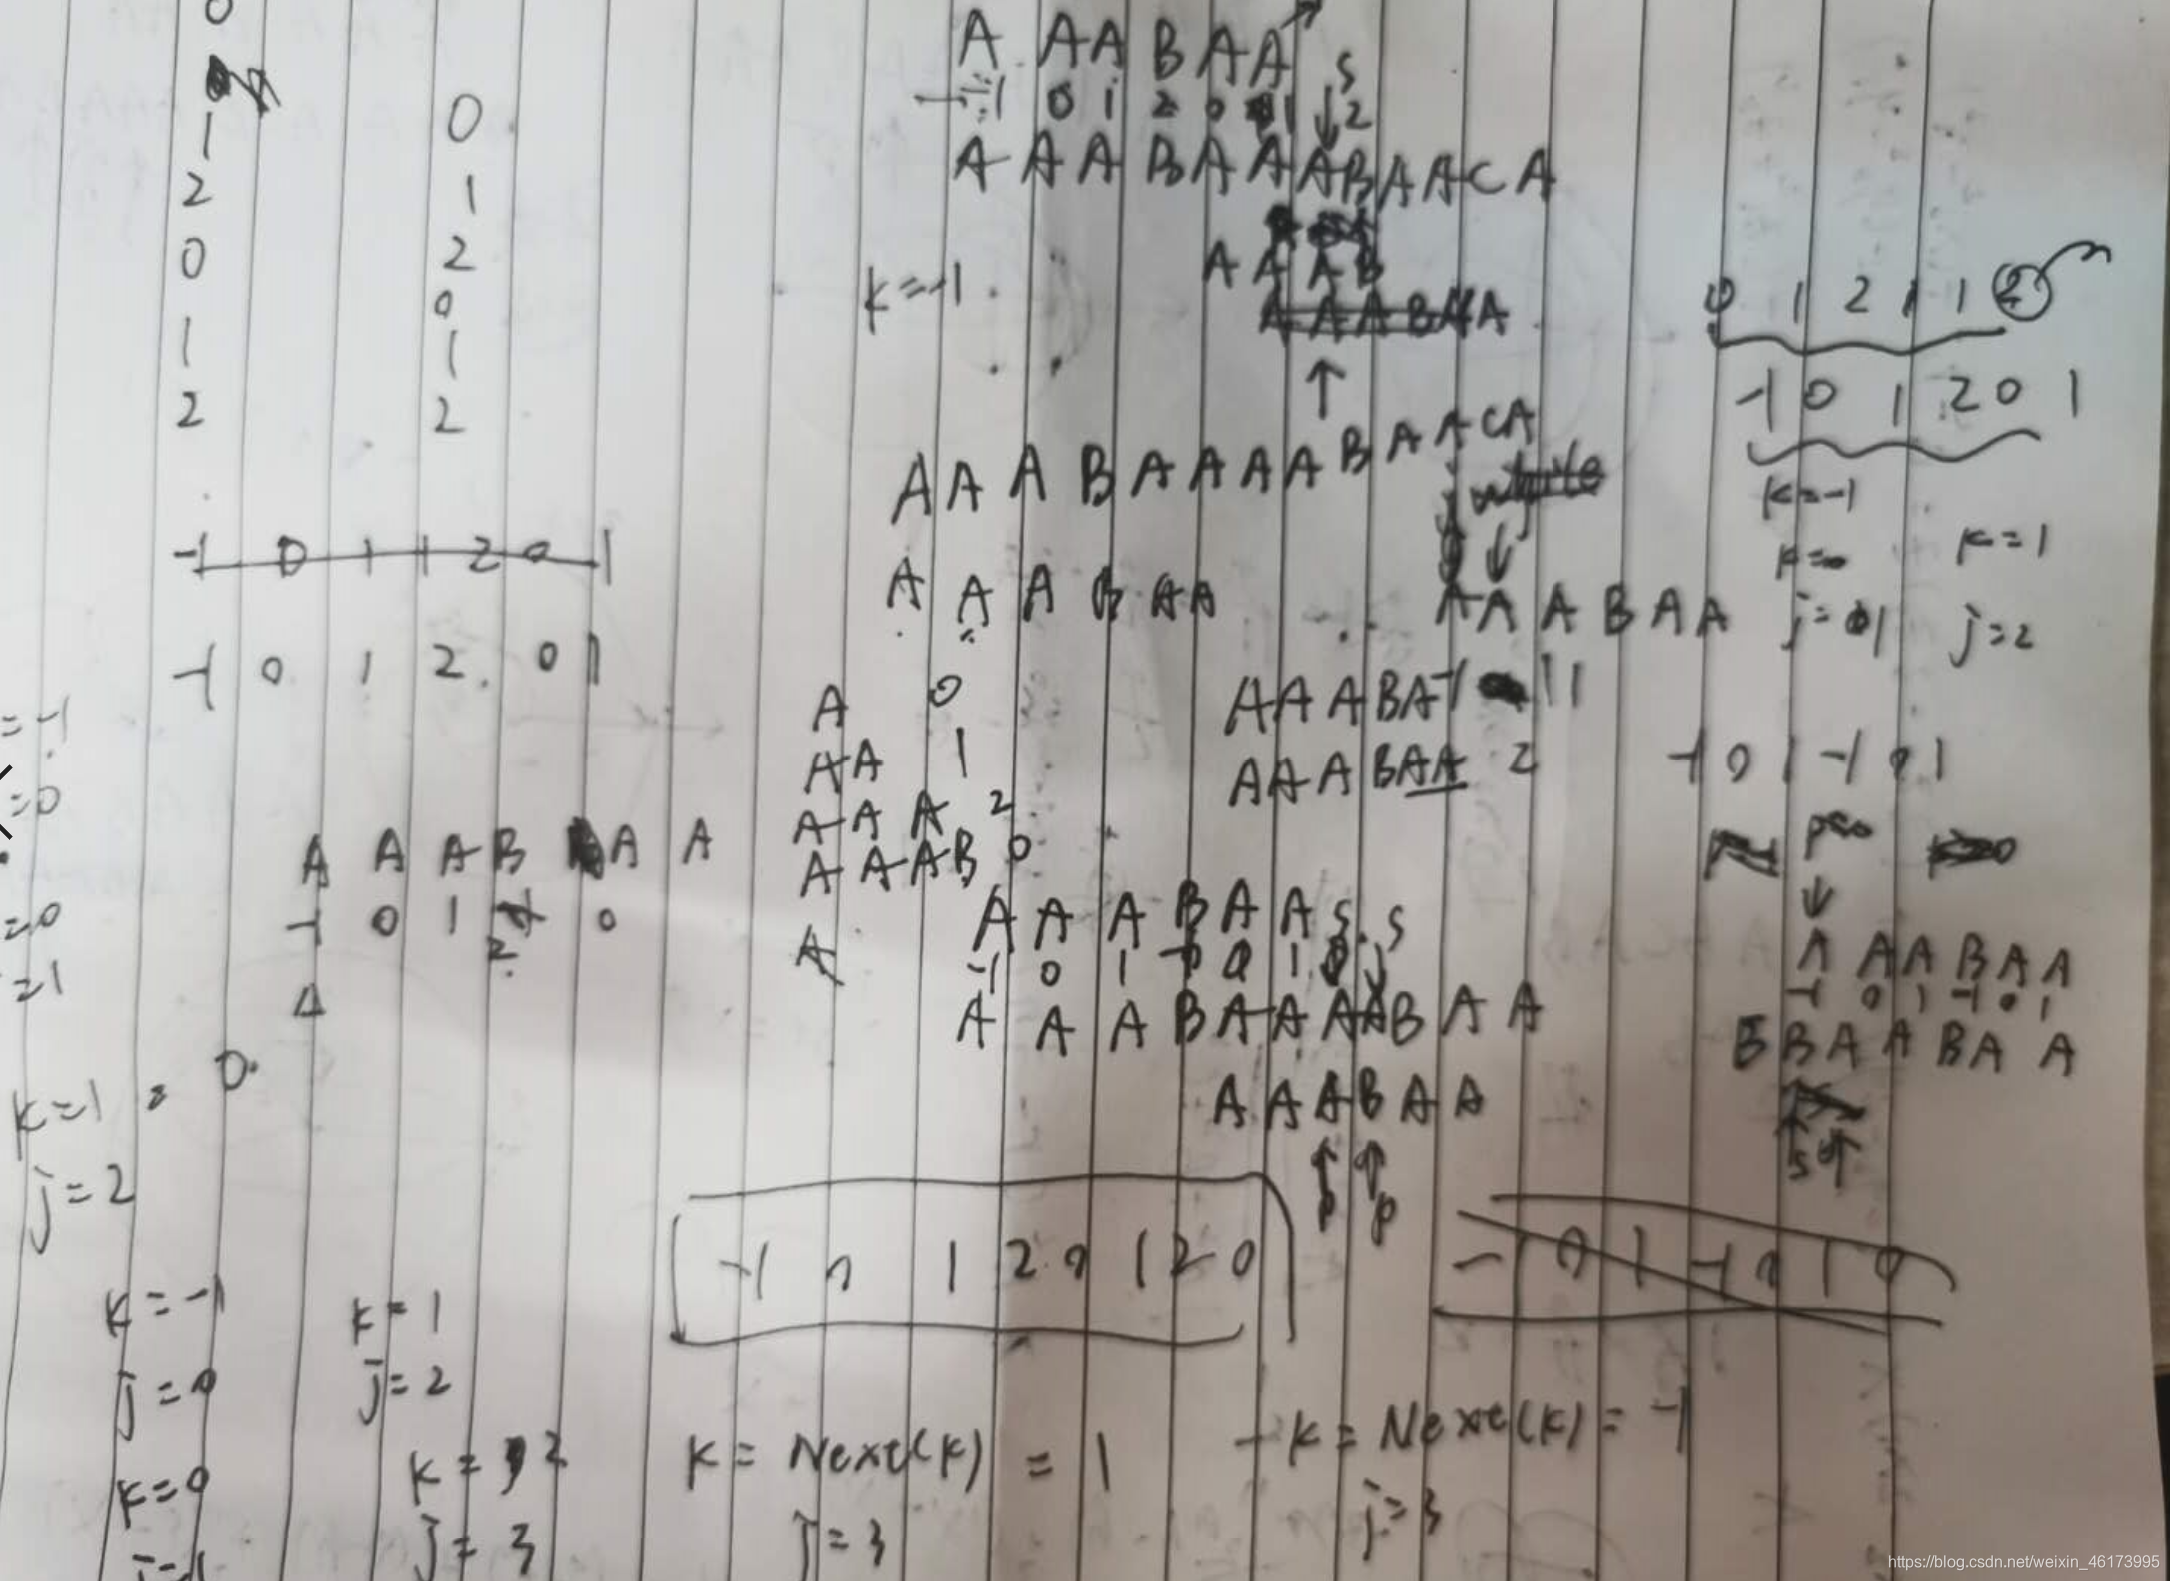 0
1
2
0
1
2
0
1
2
0
1
2
-1 0 1 1 2 0 1
-1 0 1 2 0 1
= -1
=0
=0
=1
A A A B A A
-1 0 1 2 0
A
0
k=1
j=2
k=-1
j=0
k=0
k=1
j=2
k=2
j=3
A A A B A A
-1 0 1 2 0 1 2
S
A A A B A A A B A A C A
A A A B
k=-1
A A A B A A
A A A B A A A A B A A C A
A A A B A A
A A A B A A
A 0
A A 1
A A A 2
A A A B 0
A
A A A B A 1
A A A B A A 2
A A A B A A S S
-1 0 1 0 1
A A A B A A A A B A A
A A A B A A
p p
-1 0 1 2 0 1 2 0
k = Next(k) = 1
j=3
0 1 2 1 1 2
-1 0 1 2 0 1
k=-1
k=0
k=1
j=1
j=2
-1 0 1 -1 0 1
p=0
A A A B A A
-1 0 1 -1 0 1
B B A A B A A
S
-1 0 1 -1 0 1 0
k = Next(k) = -1
j=3
https://blog.csdn.net/weixin_46173995